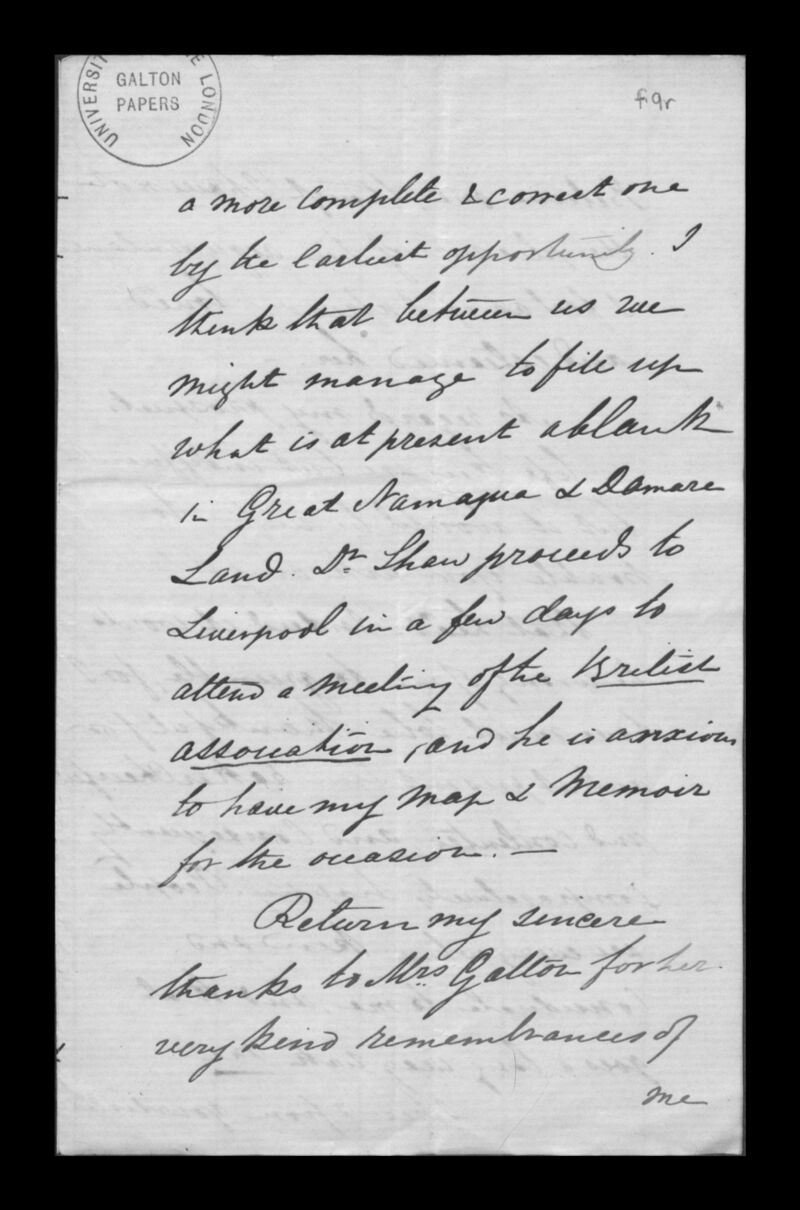 UNIVERSIT E LONDON
GALTON
PAPERS
f9r
a more complete & correct one
by the earliest opportunity. I
think that between us we
might manage to fill up
what is at present a blank
in Great Namaqua & Damara
Land. Dr. Shaw proceeds to
Liverpool in a few days to
attend a meeting of the British
association, and he is anxious
to have my map & Memoir
for the occasion. —
Return my sincere
thanks to Mrs. Galton for her
very kind remembrances of
me